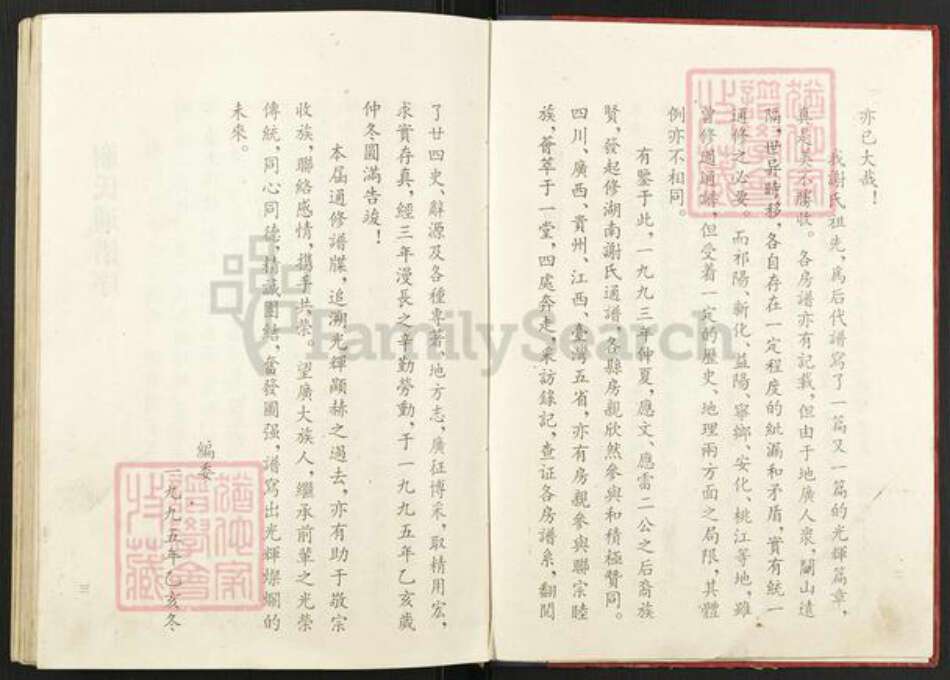 亦已大哉！
我謝氏祖先，爲后代譜寫了一篇又一篇的光輝篇章，
真是美不勝收。各房譜亦有記載，但由于地廣人衆，關山遠
隔，世异時移，各自存在一定程度的紕漏和矛盾，實有統一
通修之必要。而祁陽、新化、益陽、寧鄉、安化、桃江等地，雖
曾修過通譜，但受着一定的歷史、地理兩方面之局限，其體
例亦不相同。
有鑒于此，一九九三年仲夏，應文、應雷二公之后裔族
賢，發起修湖南謝氏通譜，各縣房親欣然參與和積極贊同。
四川、廣西、貴州、江西、臺灣五省，亦有房親參與聯宗睦
族，薈萃于一堂，四處奔走，采訪錄記，查证各房譜系，翻閱
了廿四史、辭源及各種專著、地方志，廣征博采，取精用宏，
求實存真，經三年漫長之辛勤勞動，于一九九五年乙亥歲
仲冬圓滿告竣！
本届通修譜牒，追溯光輝顯赫之過去，亦有助于敬宗
收族，聯絡感情，携手共榮。望廣大族人，繼承前輩之光榮
傳統，同心同德，精誠團結，奮發圖强，譜寫出光輝燦爛的
未來。
編委
一九九五年乙亥冬
三
猶他家
譜學會
收藏
猶他家
譜學會
收藏
FamilySearch